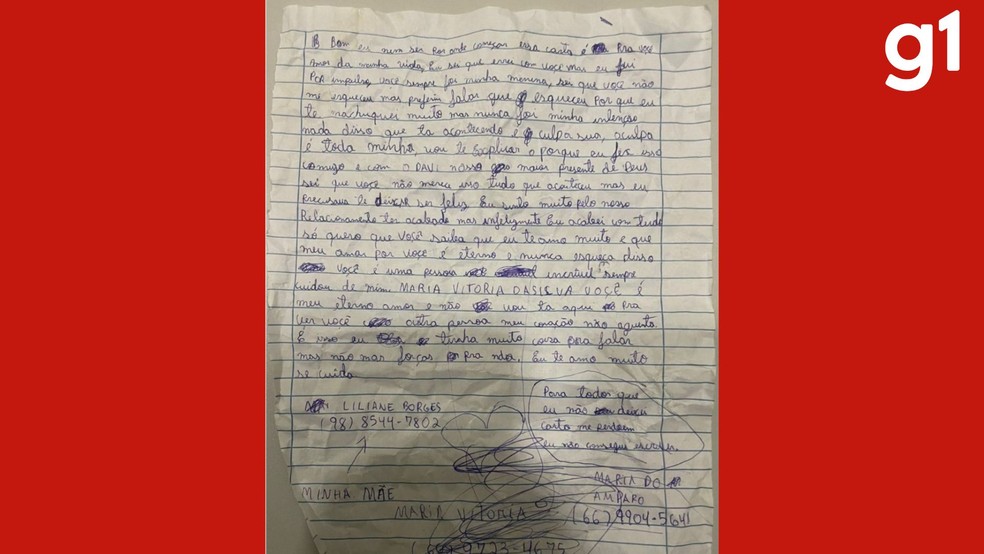 g1
Bom eu nem sei por onde começar essa carta é pra você
amor da minha vida, Eu sei que errei com você mas eu fui
POR impulso, você sempre foi minha menina, sei que você não
me esqueceu mas preferiu falar que esqueceu Por que eu
te machuquei muito mas nunca foi minha intenção
nada disso que ta acontecendo é culpa sua, a culpa
é toda minha, vou te explicar o porque eu fiz isso
comigo e com o DAVI nosso maior presente de Deus
sei que você não merecia isso tudo que aconteceu mas eu
precisava te deixar ser feliz Eu sinto muito pelo nosso
Relacionamento ter acabado mas infelizmente Eu acabei com tudo
só quero que você saiba que eu te amo muito e que
meu amor por você é eterno e nunca esqueça disso
você é uma pessoa incrível sempre
cuidou de mim MARIA VITORIA DASILVA VOCÊ É
meu eterno amor e não vou ta aqui Pra
ver você outra pessoa meu coração não aguenta
É isso eu tinha muita coisa pra falar
mas não mas forças pra nada. Eu te amo muito
se cuida
Para todos que
eu não deixei
carta me perdoem
eu não consegui escrever.
LILIANE BORGES
(98) 8544-7802
MINHA MÃE
MARIA DO
AMPARO
(66) 9904-5641
MARIA VITORIA
9723-4675